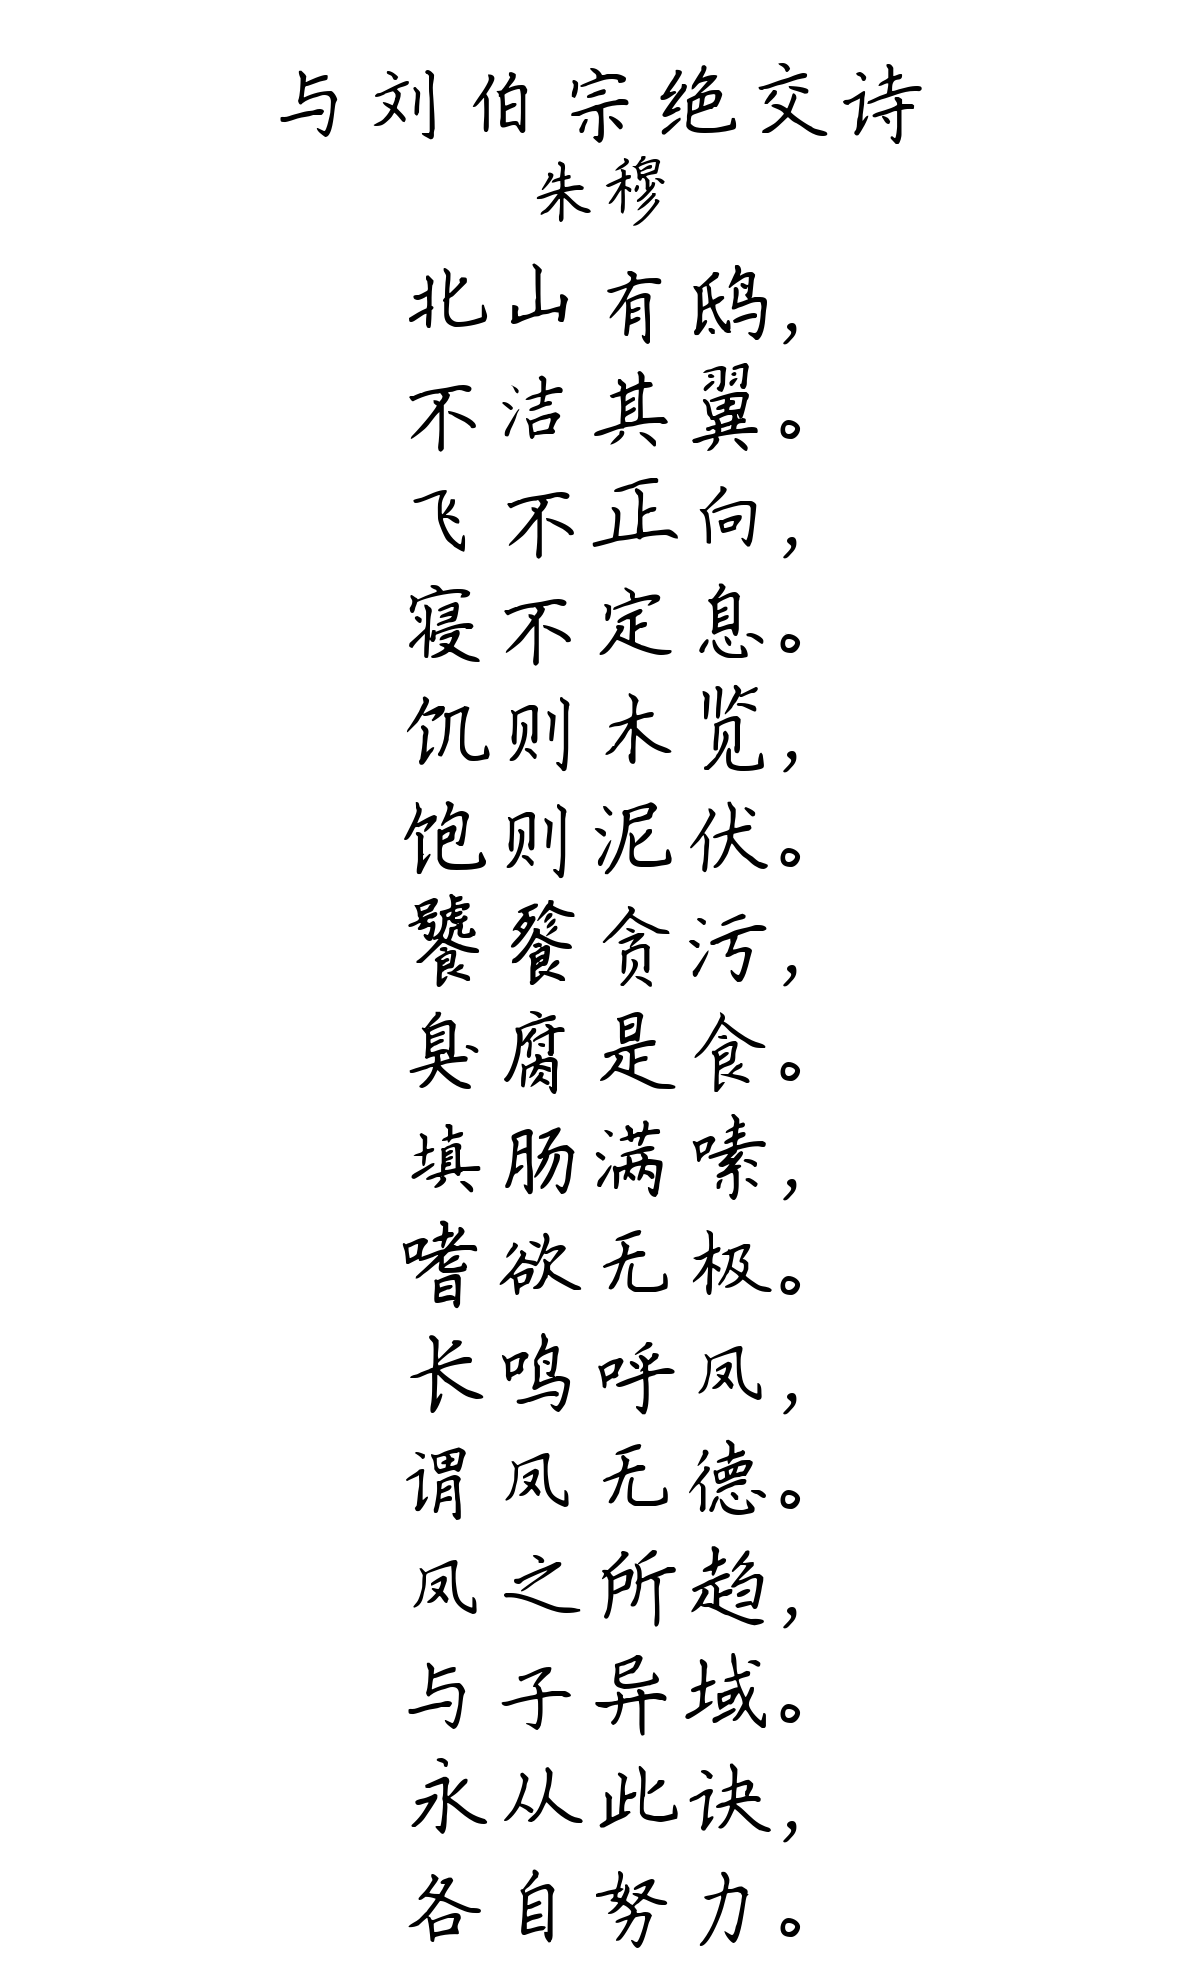 与刘伯宗绝交诗
朱穆
北山有鸱，
不洁其翼。
飞不正向，
寝不定息。
饥则木览，
饱则泥伏。
饕餮贪污，
臭腐是食。
填肠满嗉，
嗜欲无极。
长鸣呼凤，
谓凤无德。
凤之所趋，
与子异域。
永从此诀，
各自努力。